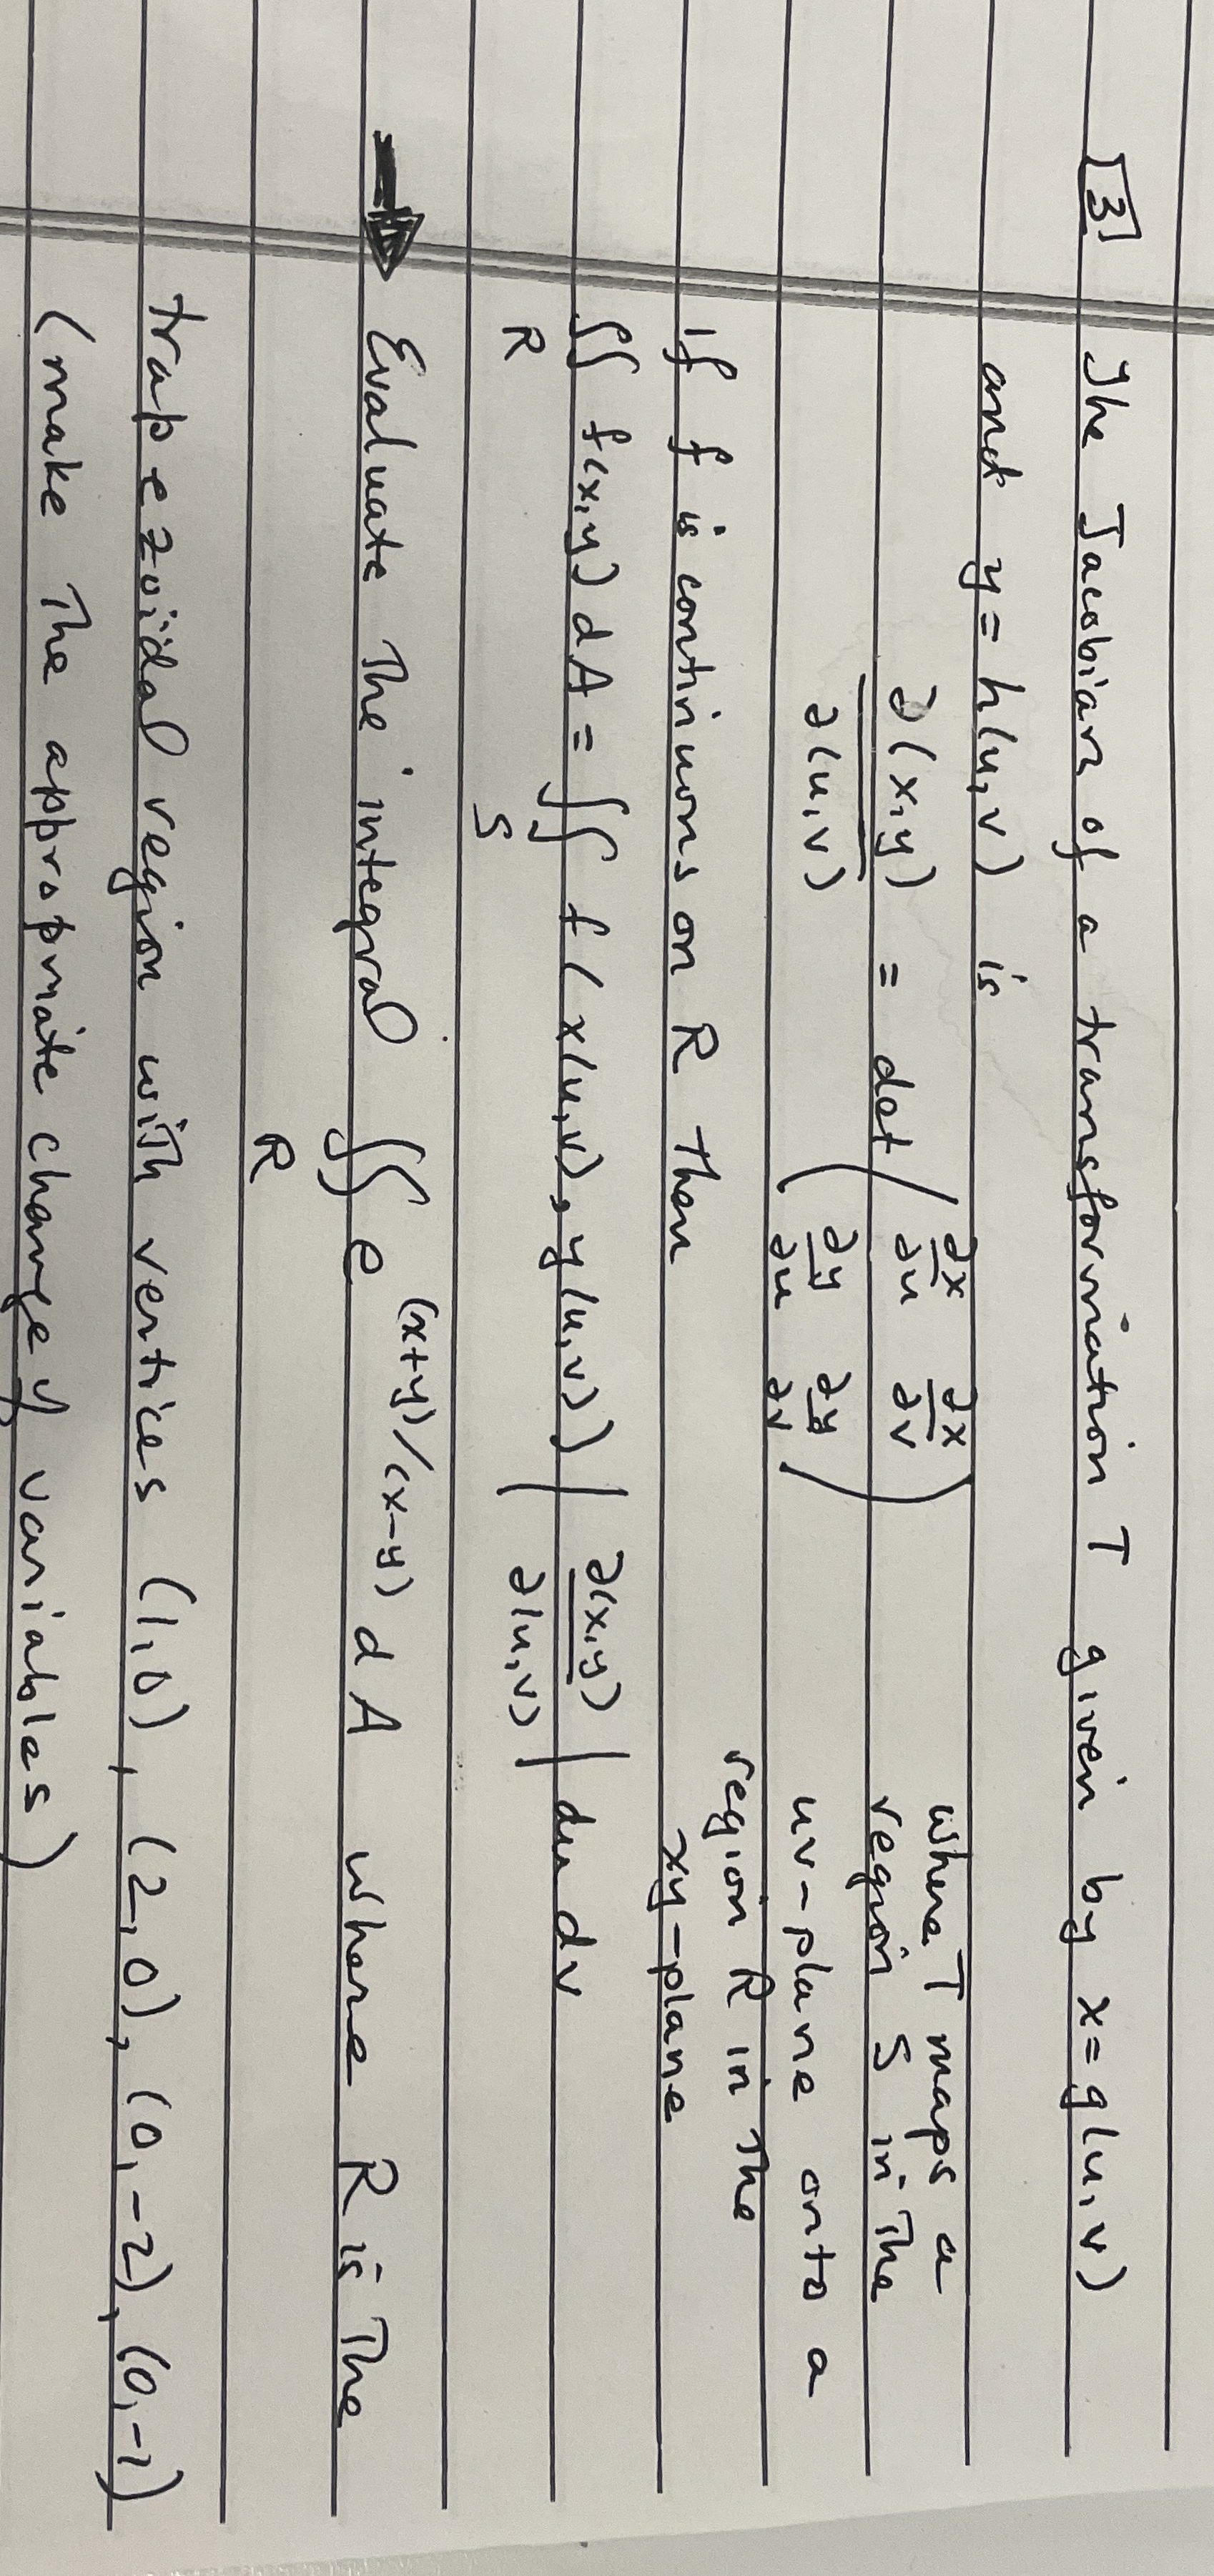 3 The Jacobian of a transformation T given by x=g(u,v)
and y=h(u,v) is
∂(x,y)/∂(u,v) = det ( ∂x/∂u ∂x/∂v
∂y/∂u ∂y/∂v )
where T maps a
region S in The
uv-plane onto a
region R in The
xy-plane
If f is continuous on R Then
∬_R f(x,y) dA = ∬_S f(x(u,v), y(u,v)) |∂(x,y)/∂(u,v)| du dv
→ Evaluate The integral ∬_R e^{(x+y)/(x-y)} dA where R is The
trapezoidal region with vertices (1,0), (2,0), (0,-2), (0,-1)
(make The appropriate change of variables)